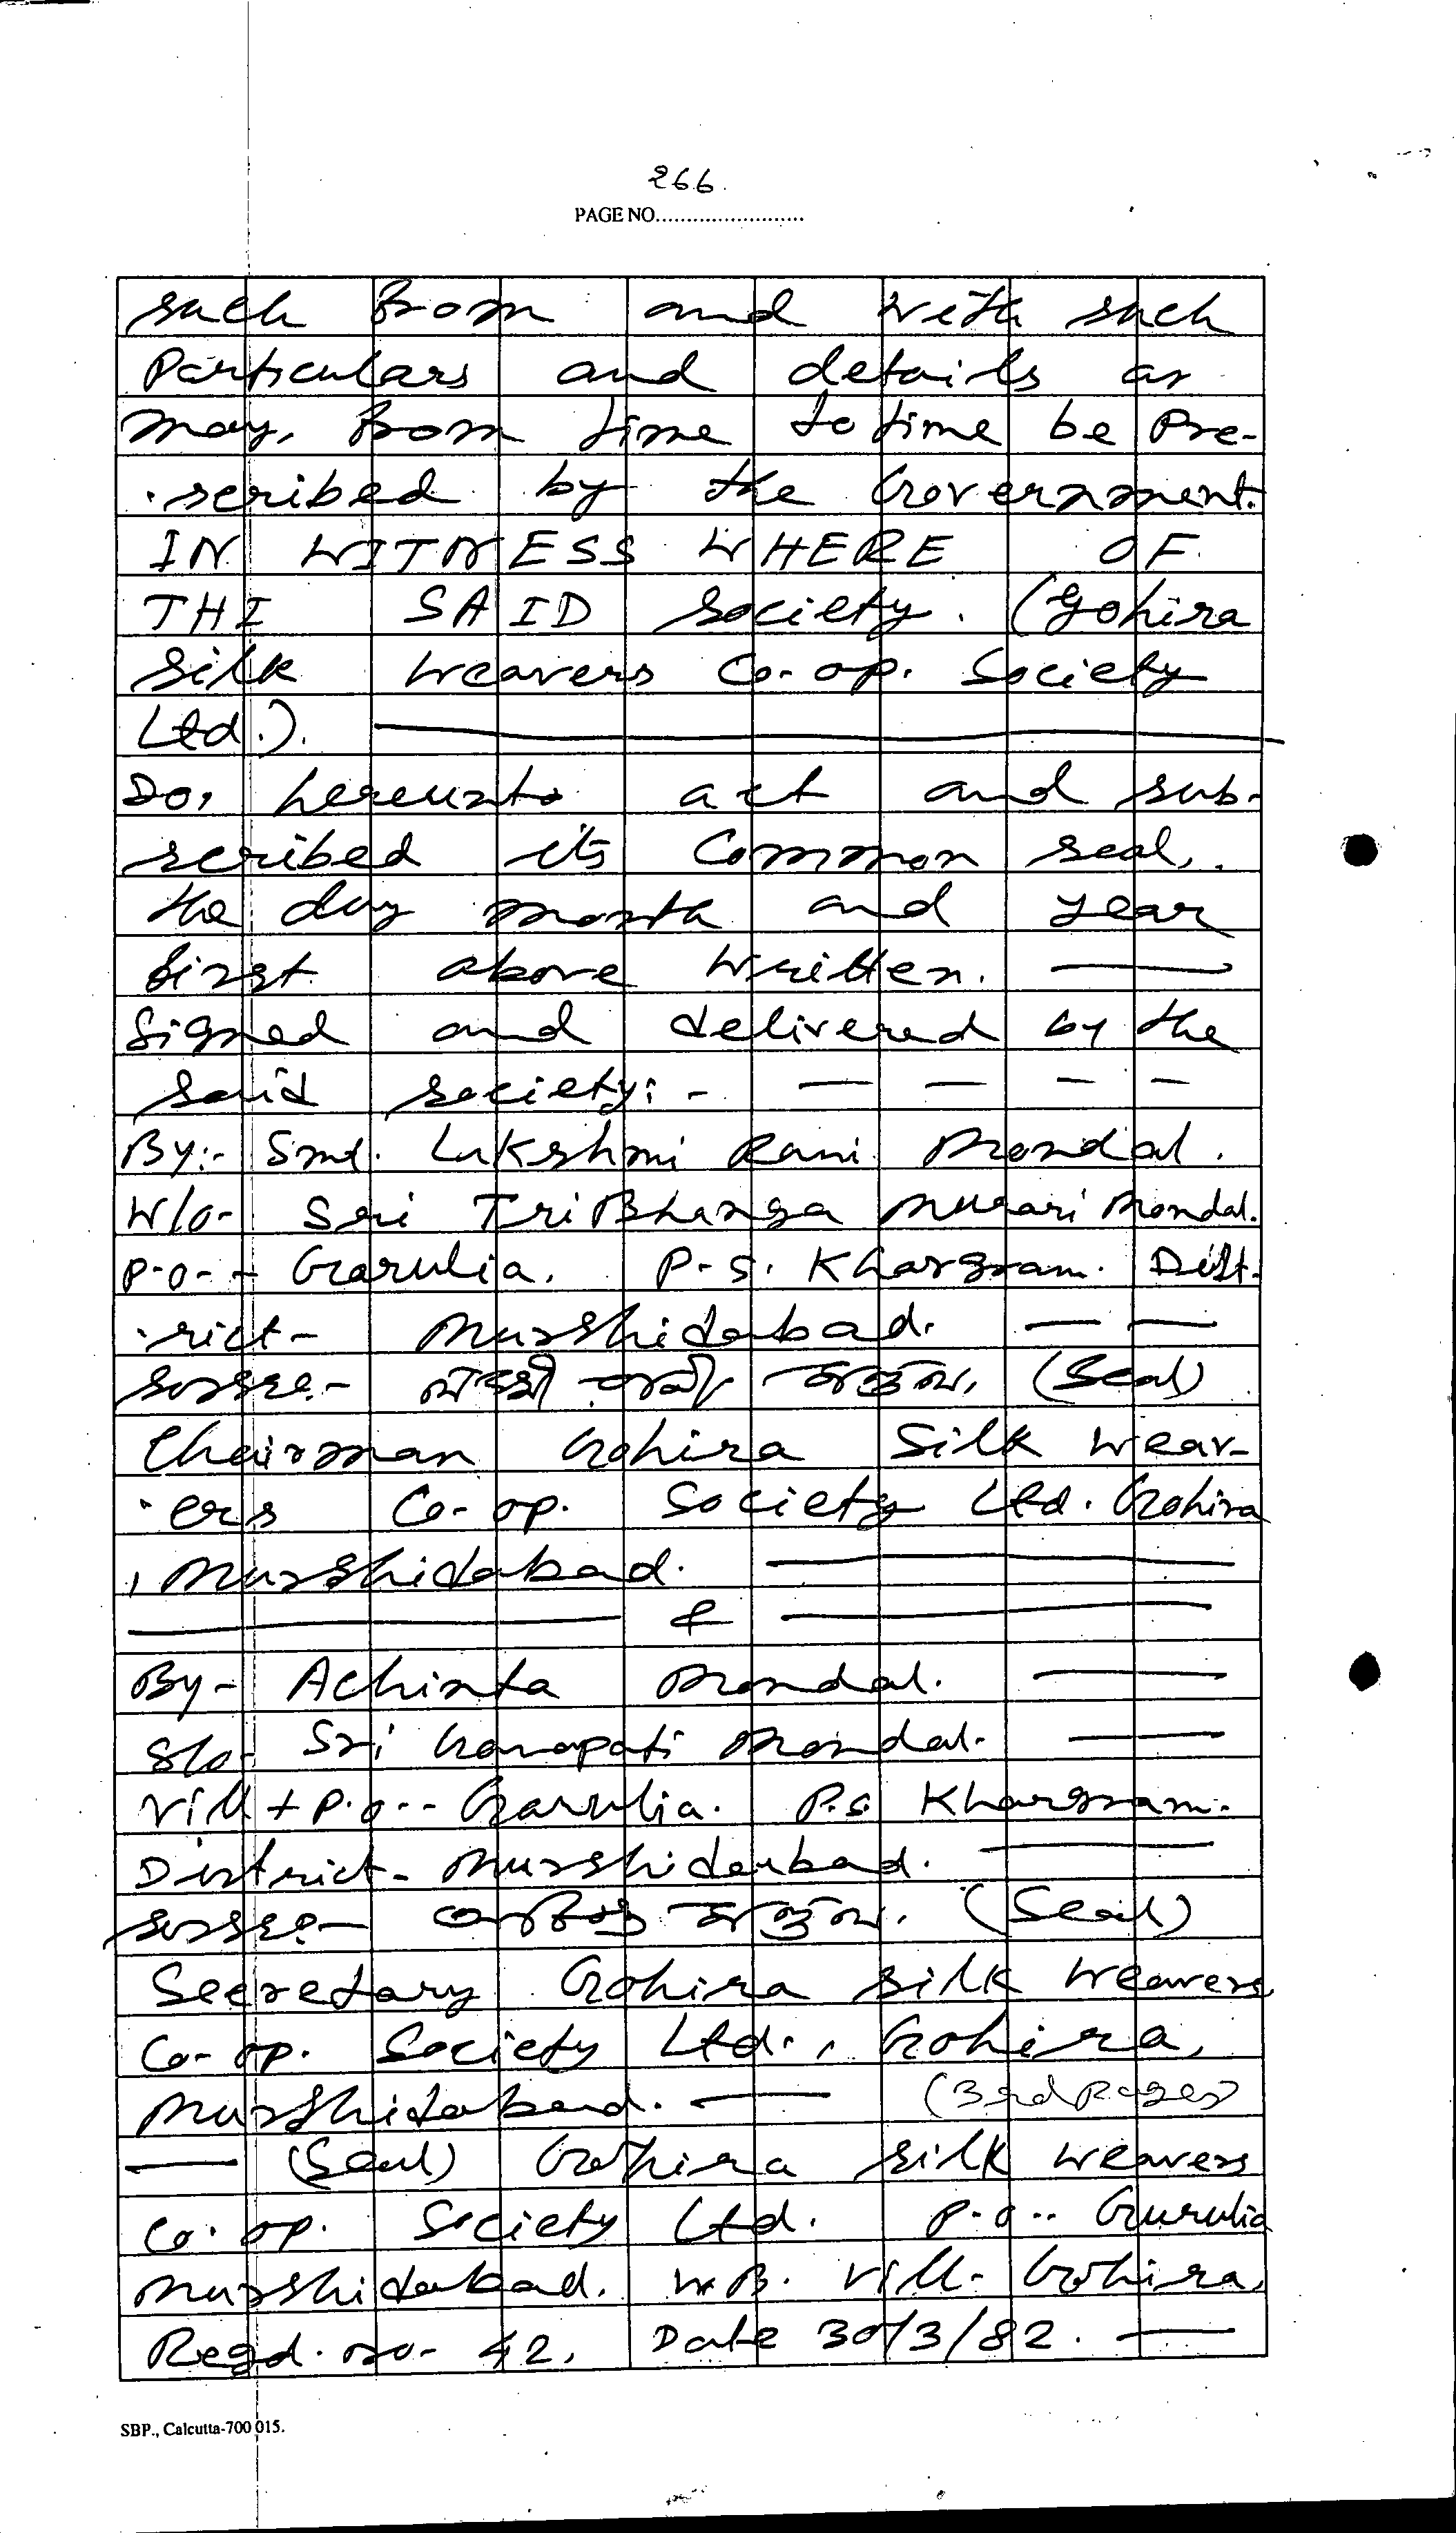 266.
PAGE NO........................
such from and with such
Particulars and details as
may, from time to time be Pre-
scribed by the Government.
IN WITNESS WHERE OF
THI SAID Society. (Gohira
Silk Weavers Co-op. Society
Ltd.).
Do, hereunto act and sub-
scribed its Common seal,.
the day month and year
first above Written.
Signed and delivered by the
said society:-
By:- Smt. Lakshmi Rani Mondal.
W/o- Sri TriBhanga Murari Mondal.
P.O.- Garulia. P.S. Khargram. Dist-
rict- Murshidabad.
লক্ষ্মী রানী মণ্ডল, (Seal)
Chairman Gohira Silk Weav-
ers Co-op. Society Ltd. Gohira
, Murshidabad.
&
By- Achinta Mondal.
S/o- Sri Ganapati Mondal.
Vill + P.O.- Garulia. P.S. Khargram.
District- Murshidabad.
অচিন্ত্য মণ্ডল. (Seal)
Secretary Gohira Silk Weavers
Co-op. Society Ltd., Gohira,
Murshidabad. (3rd Pages)
(Seal) Gohira Silk Weavers
Co-op. Society Ltd. P.O.. Gurulia
Murshidabad. W.B. Vill- Gohira,
Regd. no- 42, Date 30/3/82.
SBP., Calcutta-700 015.